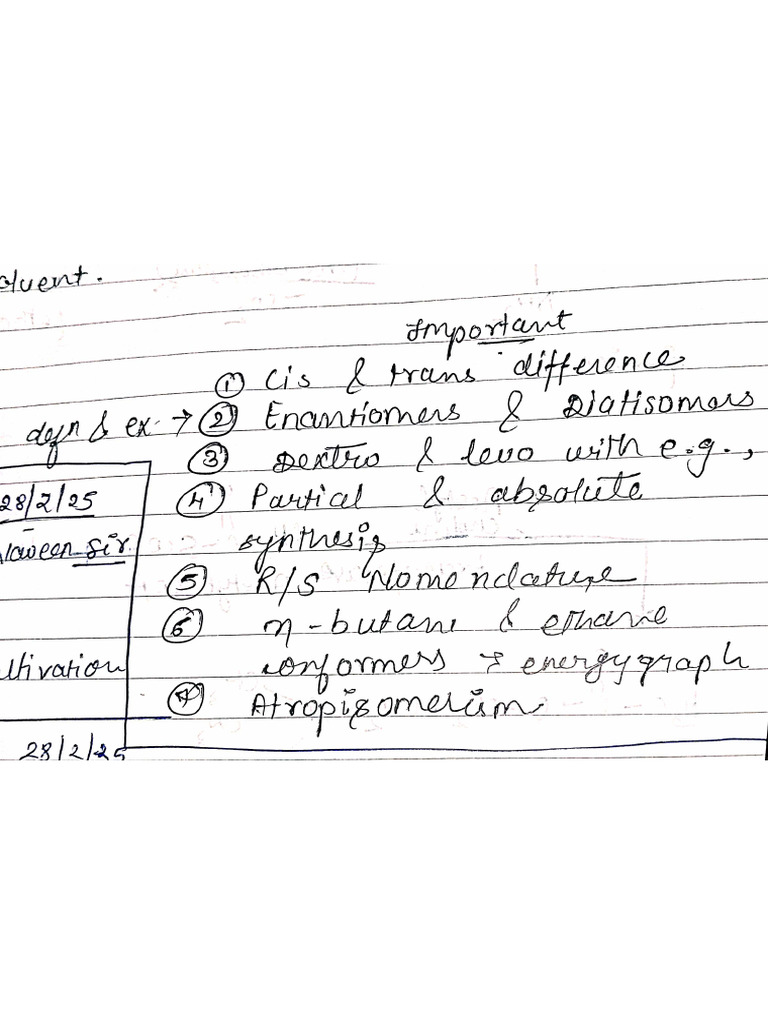 olvent.
Important
① Cis & trans difference
defn & ex. → ② Enantiomers & Diatisomers
③ Dextro & levo with e.g.,
28/2/25
④ Partial & absolute
Naveen Sir.
synthesis
⑤ R/S Nomenclature
⑥ n-butane & ethane
ltivation
conformers → energy graph
⑦ Atropisomerism
28/2/25